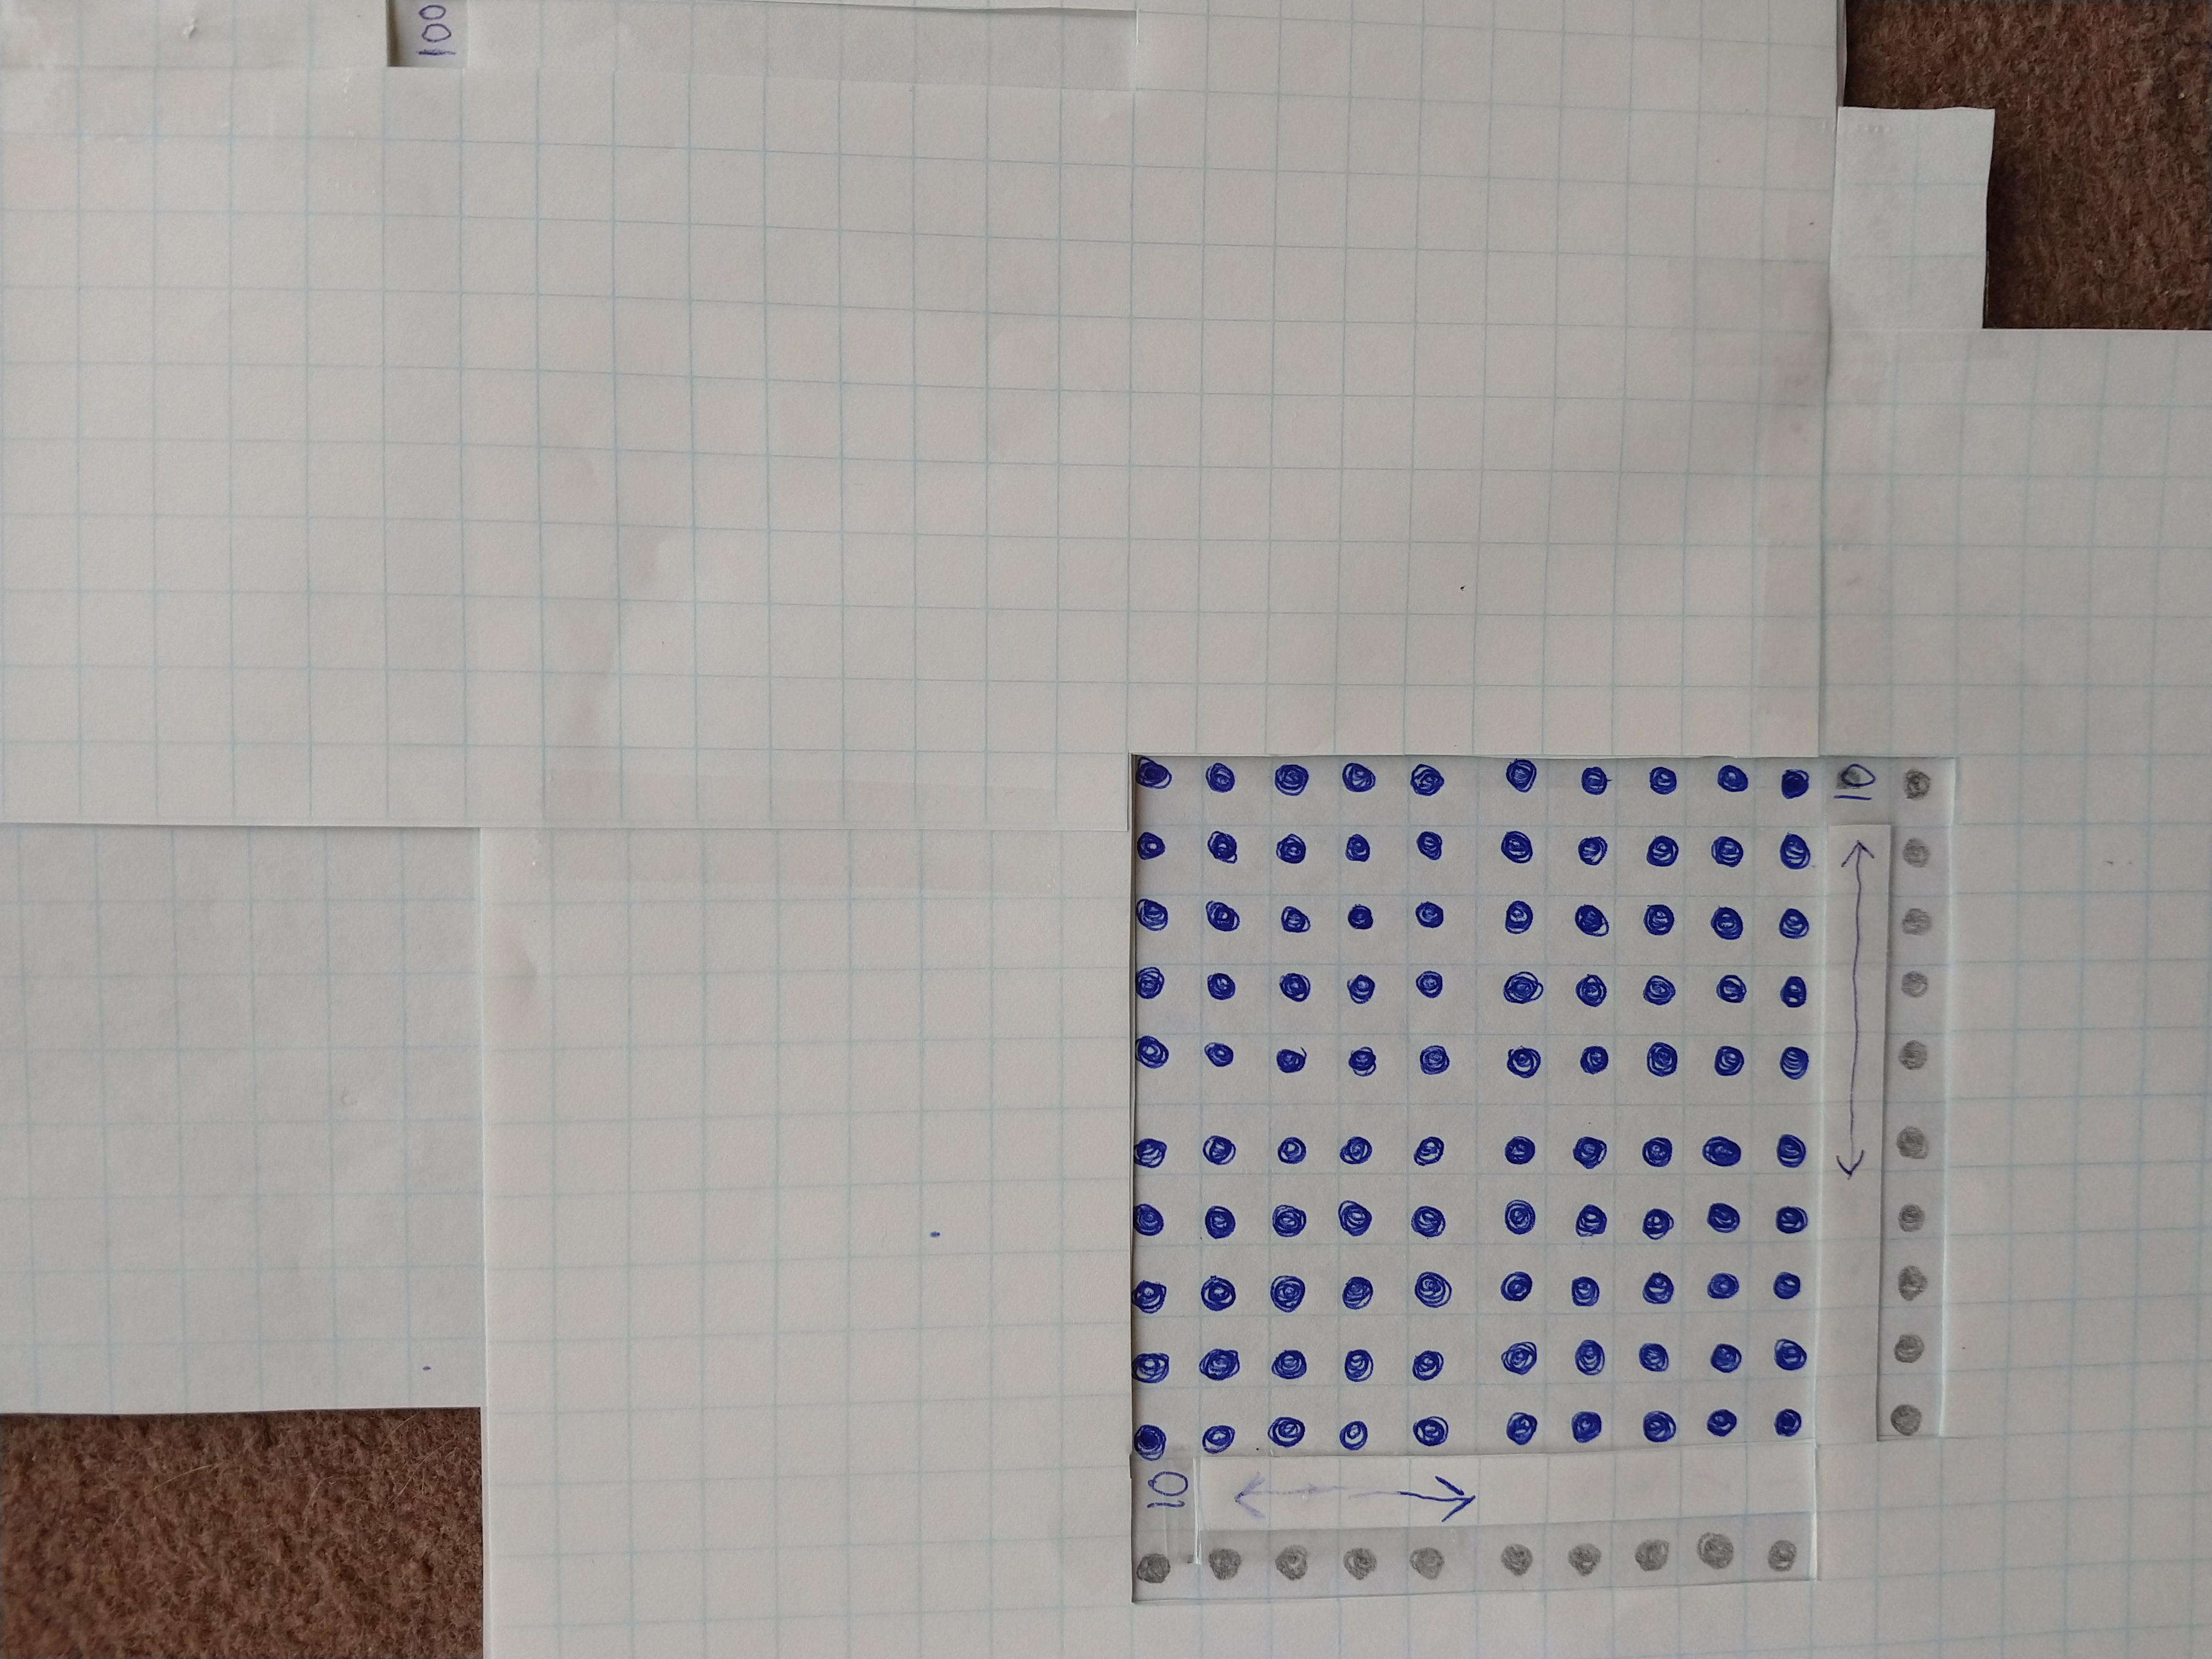 100
10
10